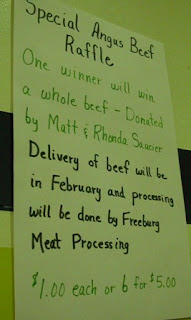 Special Angus Beef
Raffle
One winner will win
a whole beef - Donated
by Matt & Rhonda Saucier
Delivery of beef will be
in February and processing
will be done by Freeburg
Meat Processing
$1.00 each or 6 for $5.00